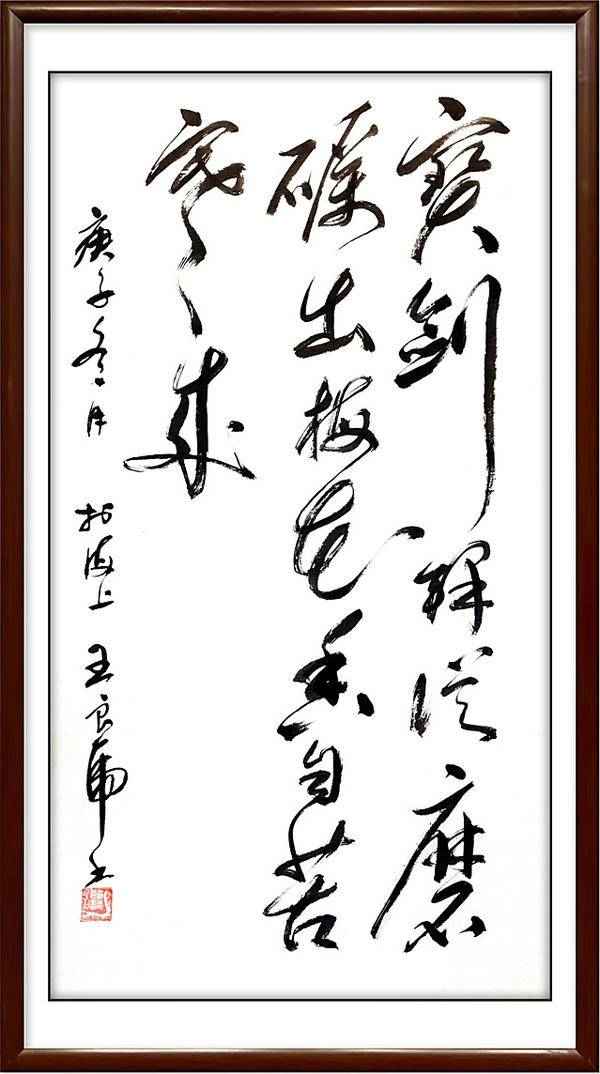 寶劍鋒從磨
礪出梅花香自苦
寒來
庚子冬月 於海上 王良書